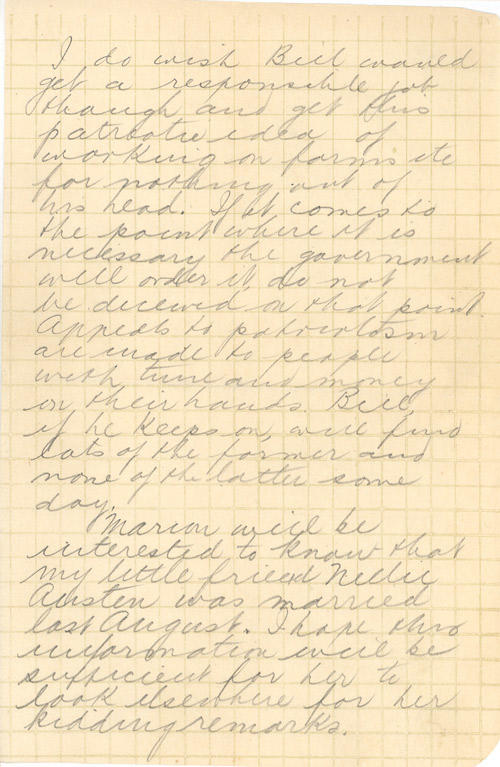 I do wish Bill would
get a responsible job
though and get this
patriotic idea of
working on farms etc
for nothing out of
his head. If it comes to
the point where it is
necessary the government
will order it, do not
be deceived on that point.
Appeals to patriotism
are made to people
with time and money
on their hands. Bill,
if he keeps on, will find
lots of the former and
none of the latter some
day.
Marion will be
interested to know that
my little friend Nellie
Austen was married
last August. I hope this
information will be
sufficient for her to
look elsewhere for her
kidding remarks.